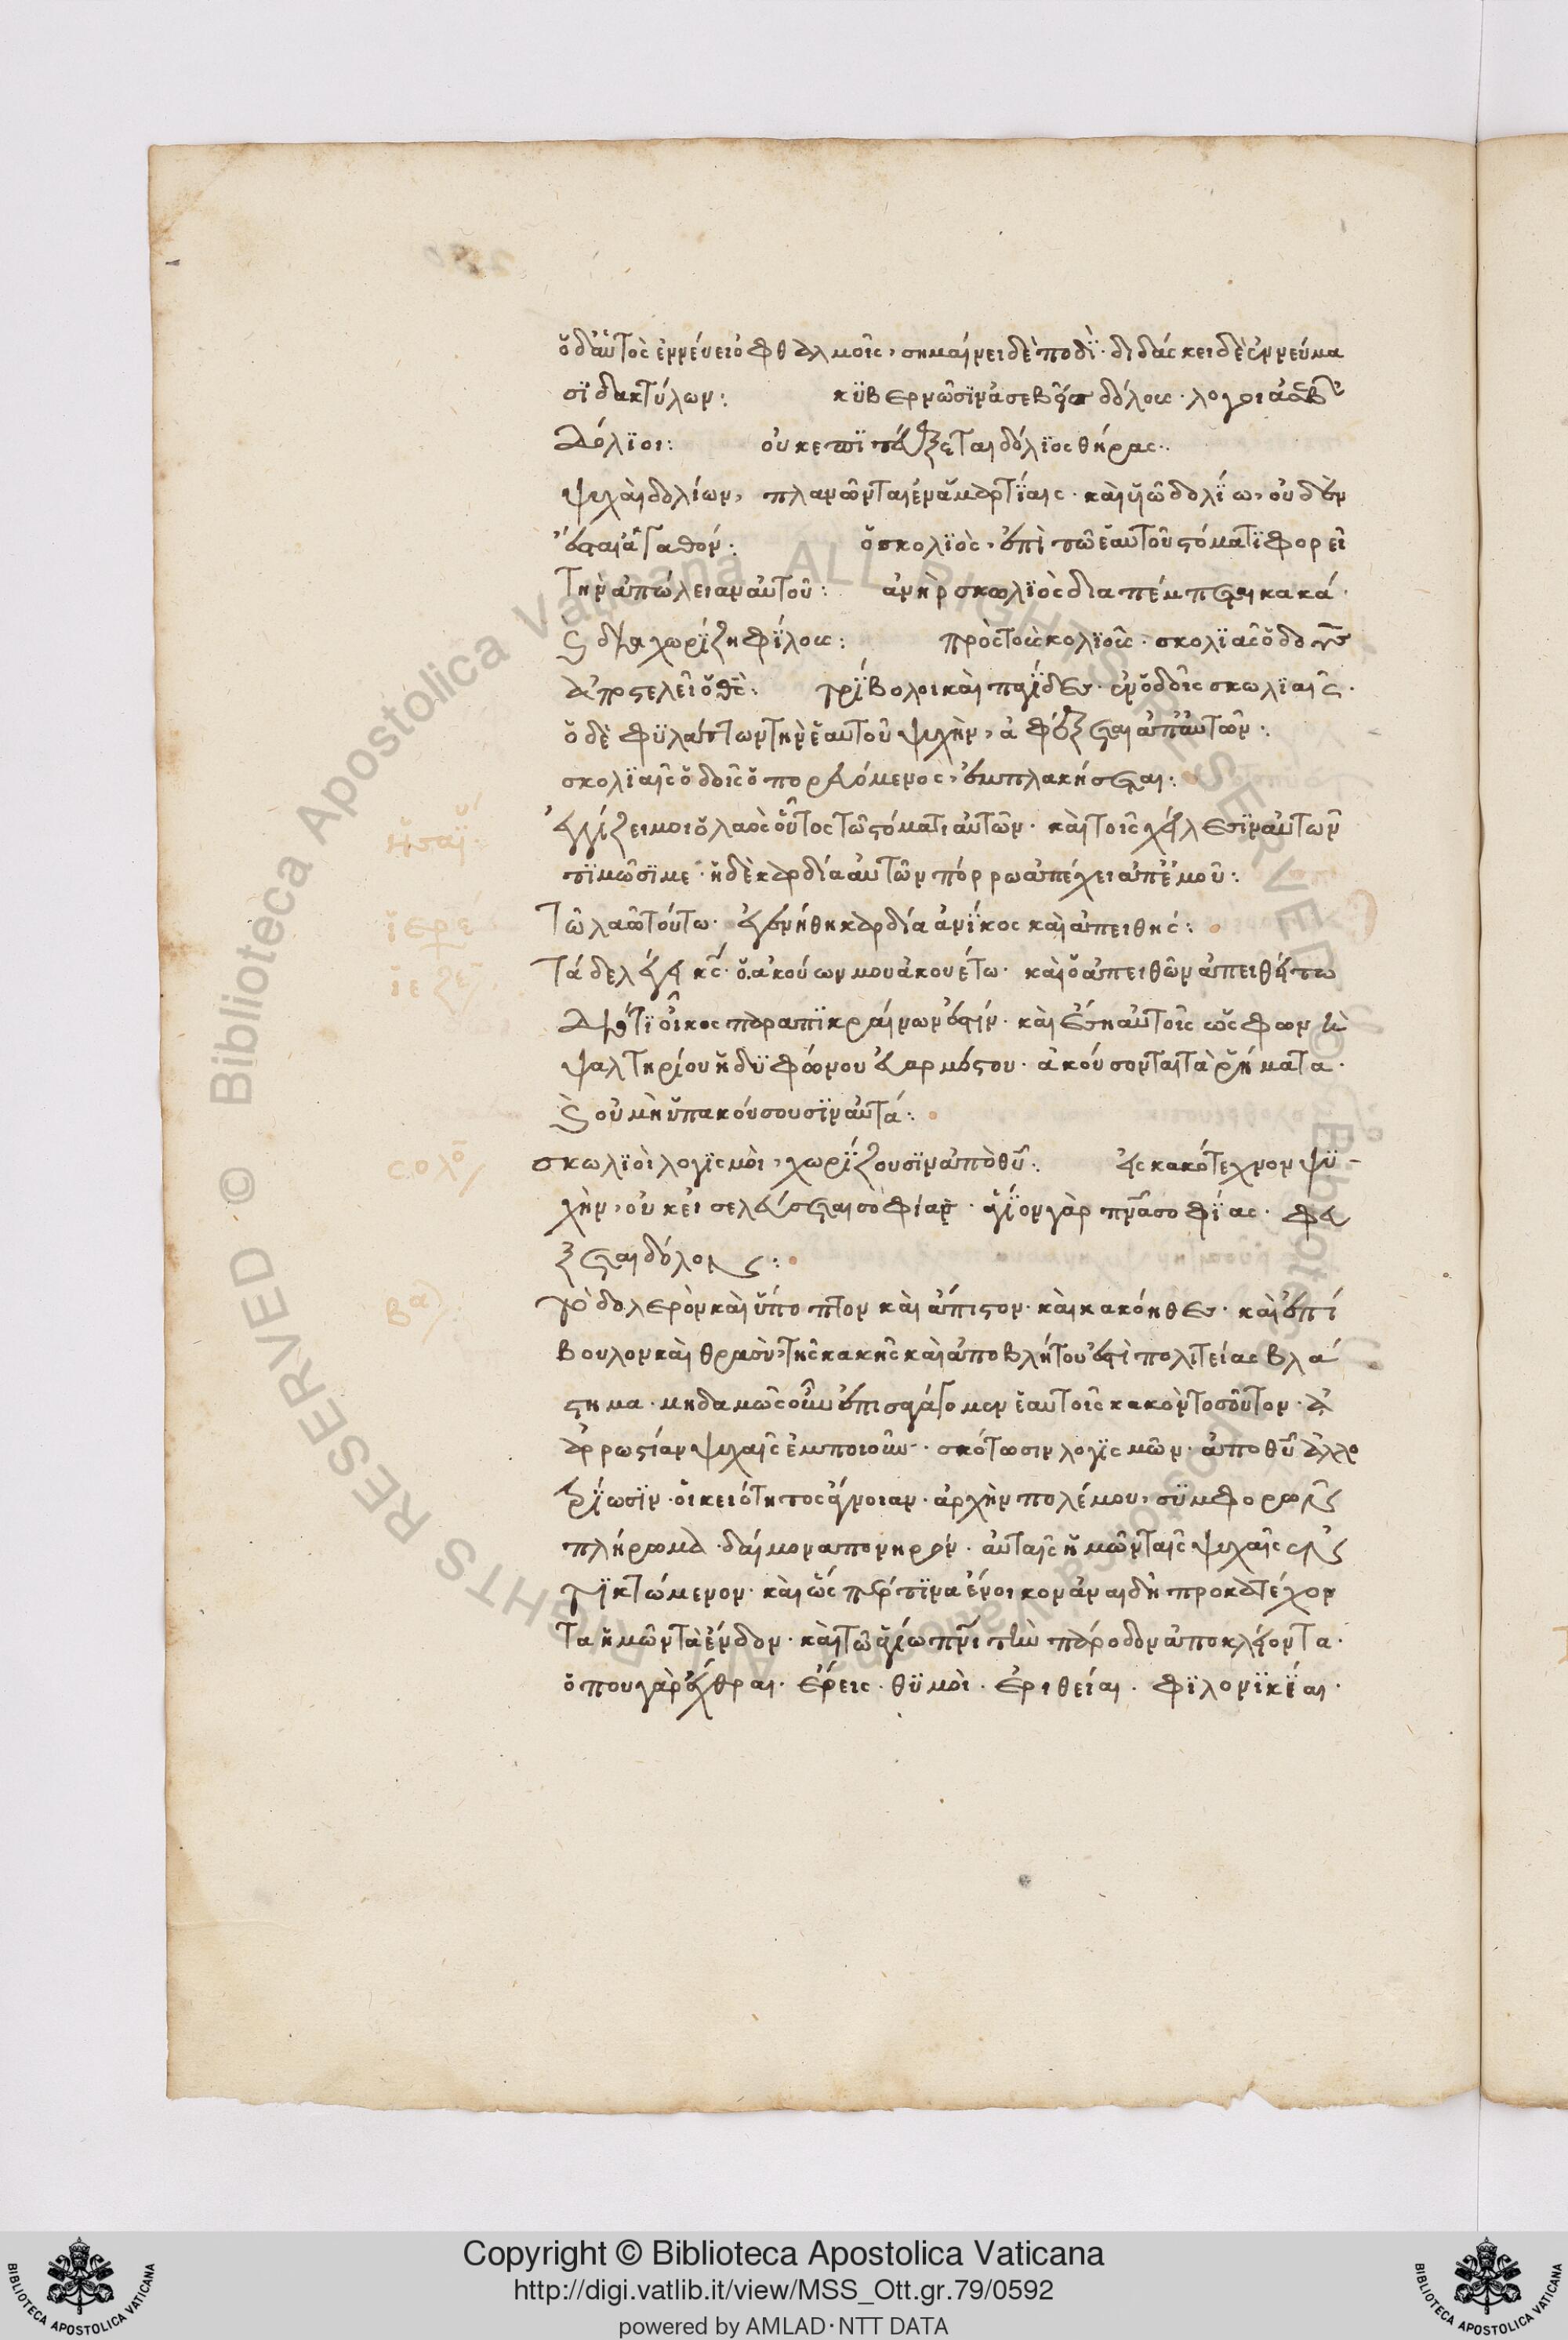 ὁ δ' αὐτὸς ἐννεύει ὀφθαλμοῖς, σημαίνει δὲ ποδὶ· διδάσκει δὲ ἐννεύμα
σϊ δακτύλων: κϋβερνῶσϊν ἀσεβεῖς δόλους· λογι
δόλϊοι: οὐκ ἐπϊτεύξεται δόλϊος θήρας:
ψυχαὶ δολίων, πλανῶνται ἐν ἁμαρτΐαις· καὶ υἱῶ δολΐω, οὐδὲν
ἔσται ἀγαθόν: ὁ σκολϊὸς, ἐπὶ τῶ ἑαυτοῦ στόματϊ φορεῖ
τὴν ἀπώλειαν αὐτοῦ: ἀνὴρ σκωλϊὸς διαπέμπεται κακά·
καὶ διαχωρΐζει φϊλους: πρὸς τοὺς σκολϊοὺς· σκολϊὰς ὁδοὺς
ἀποστελεῖ ὁ θς: τρΐβολοι καὶ παγΐδες· ἐν ὁδοῖς σκωλϊαῖς·
ὁ δὲ φϋλάσσων τὴν ἑαυτοῦ ψυχὴν, ἀφέξεται ἀπ' αὐτῶν:
σκολϊαῖς ὁδοῖς ὁ πορευόμενος, ἐμπλακήσεται:
ἡσαΐ
ἐγγίζει μοι ὁ λαὸς οὗτος τῶ στόματι αὐτῶν· καὶ τοῖς χείλεσϊν αὐτῶν
τϊμῶσϊ με· ἡ δὲ καρδία αὐτῶν πόρρω ἀπέχει ἀπ' ἐμοῦ:
ἱερε
τῶ λαῶ τούτω· ἐγενήθη καρδία ἀνΐκοος καὶ ἀπειθής:
ἰεζε
τάδε λέγει κς· ὁ ἀκούων μου ἀκουέτω· καὶ ὁ ἀπειθῶν ἀπειθείτω
διότϊ οἶκος παραπϊκραίνων ἐστίν· καὶ ἔση αὐτοῖς ὡς φωνὴ
ψαλτηρίου ἡδϋφώνου εὐαρμόστου· ἀκούσονται τὰ ῥήματα·
καὶ οὐ μὴ ὑπακούσουσϊν αὐτά:
σολο
σκωλϊοὶ λογϊσμοὶ, χωρΐζουσϊν ἀπὸ θυ: εἰς κακότεχνον ψϋ-
χὴν, οὐκ εἰσελεύσεται σοφία· ἅγϊον γὰρ πνα σοφΐας· φεύ
ξεται δόλον:
βα
τὸ δολερὸν καὶ ὕποπτον καὶ ἄπιστον· καὶ κακόηθες· καὶ ἐπί
βουλον καὶ θρασὺ, τῆς κακῆς καὶ ἀποβλήτου ἐστὶ πολιτείας βλά
στημα· μηδαμῶς οὖν ἐπισπάσωμεν ἑαυτοῖς κακὸν τοσοῦτον·
ἀρρωστίαν ψυχαῖς ἐμποιοῦν· σκότωσιν λογϊσμῶν· ἀπο θυ ἀλλο
τρΐωσϊν· οἰκειότητος ἄγνοιαν· ἀρχὴν πολέμου, σϋμφορῶν
πλήρωμα· δαίμονα πονηρὸν· αὐταῖς ἡμῶν ταῖς ψυχαῖς ἐν
τϊκτώμενον· καὶ ὥσπερ τϊνα ἔνοικον ἀναιδῆ προκατέχον
τα ἡμῶν τὰ ἔνδον· καὶ τῶ ἁγίω πνι τὴν πάροδον ἀποκλείοντα·
ὅπου γὰρ ἔχθραι· ἔρεις· θϋμοὶ· ἐριθείαι· φϊλονϊκΐαι·
Copyright © Biblioteca Apostolica Vaticana
http://digi.vatlib.it/view/MSS_Ott.gr.79/0592
powered by AMLAD·NTT DATA